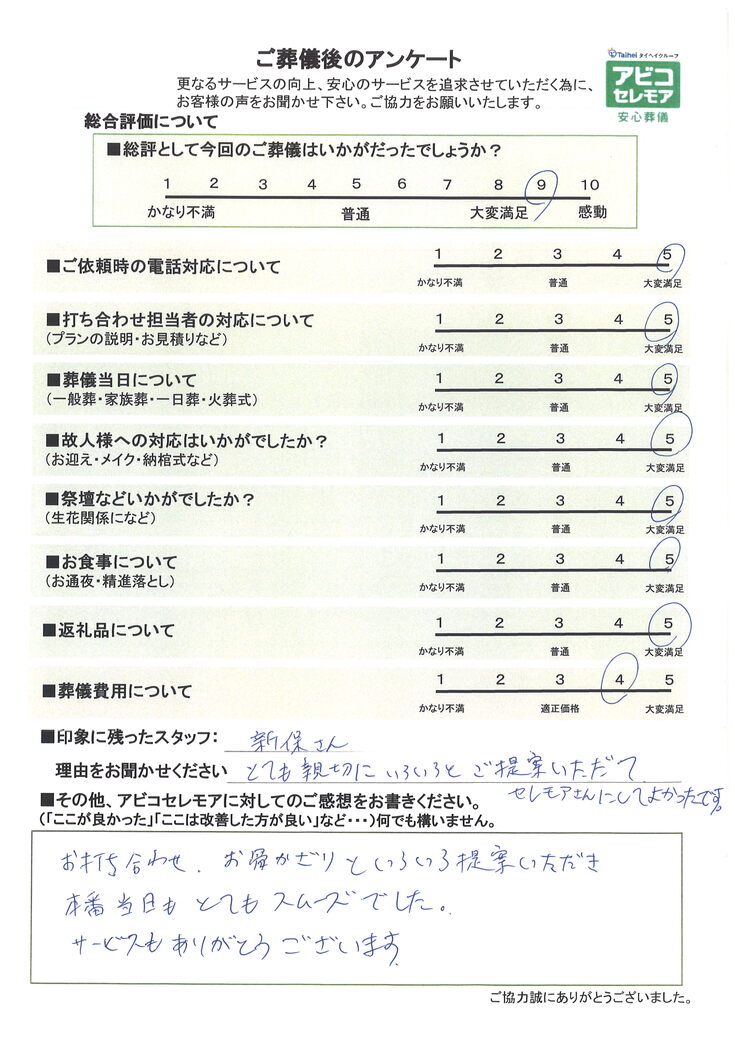 ご葬儀後のアンケート
Taihei タイヘイグループ
アビコ
セレモア
安心葬儀
更なるサービスの向上、安心のサービスを追求させていただく為に、
お客様の声をお聞かせ下さい。ご協力をお願いいたします。
総合評価について
■総評として今回のご葬儀はいかがだったでしょうか?
1 2 3 4 5 6 7 8 9 10
かなり不満 普通 大変満足 感動
■ご依頼時の電話対応について
1 2 3 4 5
かなり不満 普通 大変満足
■打ち合わせ担当者の対応について
(プランの説明・お見積りなど)
1 2 3 4 5
かなり不満 普通 大変満足
■葬儀当日について
(一般葬・家族葬・一日葬・火葬式)
1 2 3 4 5
かなり不満 普通 大変満足
■故人様への対応はいかがでしたか?
(お迎え・メイク・納棺式など)
1 2 3 4 5
かなり不満 普通 大変満足
■祭壇などいかがでしたか?
(生花関係になど)
1 2 3 4 5
かなり不満 普通 大変満足
■お食事について
(お通夜・精進落とし)
1 2 3 4 5
かなり不満 普通 大変満足
■返礼品について
1 2 3 4 5
かなり不満 普通 大変満足
■葬儀費用について
1 2 3 4 5
かなり不満 適正価格 大変満足
■印象に残ったスタッフ: 新保さん
理由をお聞かせください とても親切にいろいろとご提案いただいて
セレモアさんにしてよかったです。
■その他、アビコセレモアに対してのご感想をお書きください。
(「ここが良かった」「ここは改善した方が良い」など・・・)何でも構いません。
お打ち合わせ、お骨かざりといろいろ提案いただき
本番当日もとてもスムーズでした。
サービスもありがとうございます
ご協力誠にありがとうございました。